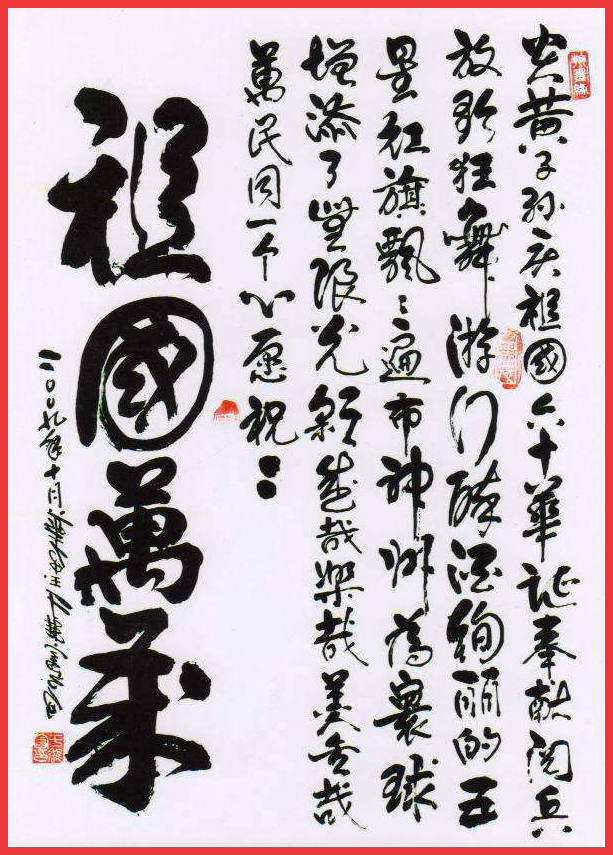 炎黄子孙庆祖國六十華诞奉献阅兵
放歌狂舞游行醉酒绚丽的五
星红旗飘々遍布神州為寰球
增添了無限光哉樂哉美哉
萬民同一个心愿祝：
祖國萬歲
二00九年十月